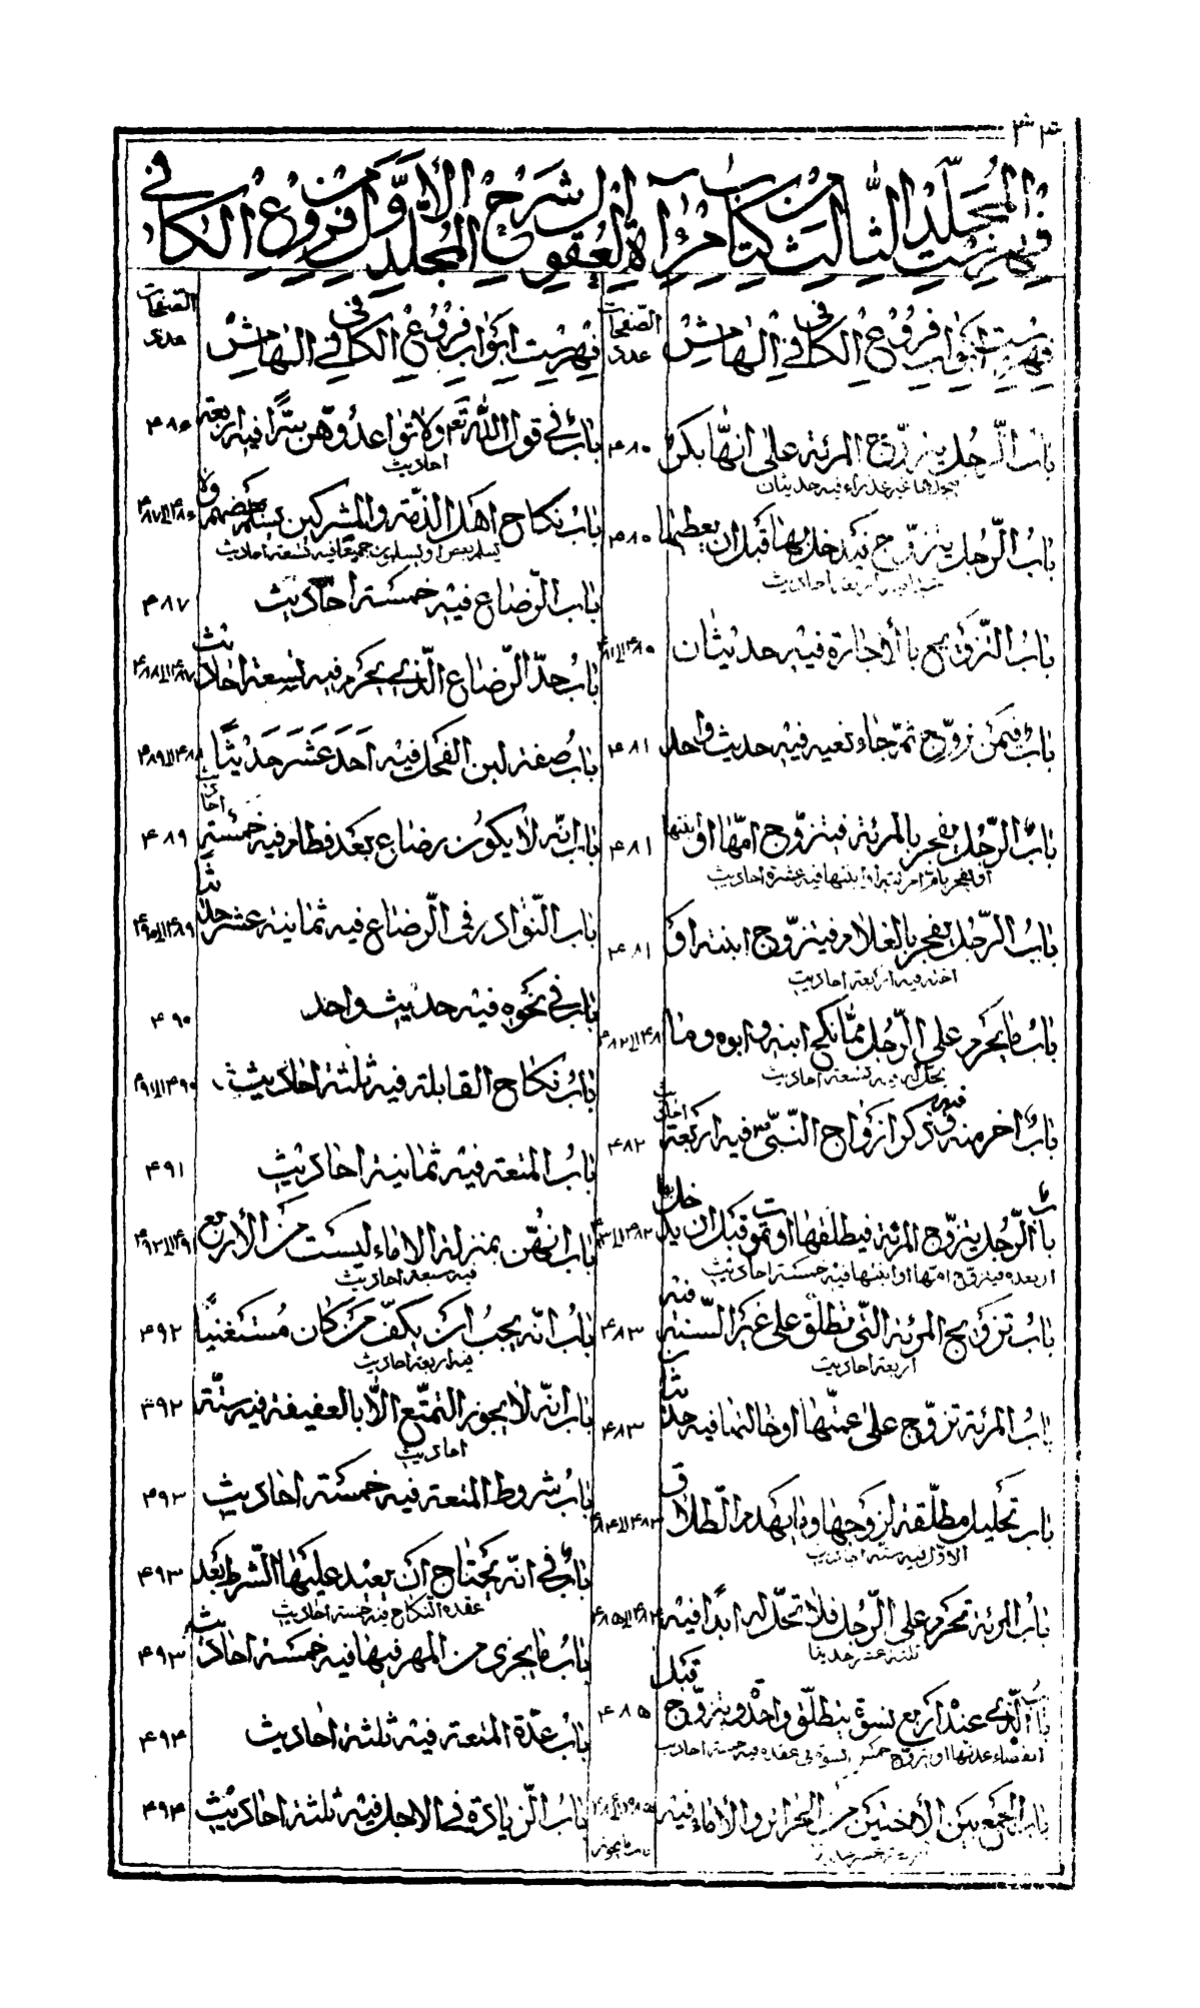 فهرست المجلد الثالث من كتاب مرآة العقول شرح المجلد الأول من فروع الكافي في
فهرست ابواب فروع الكافي في الهامش
الصفحات عددى
باب الرجل يتزوج المرئة على انها بكر
فيجدها غير عذراء فيه حديثان
۴۸۰
باب الرجل يتزوج فيدخل بها قبل ان يعطيها
شيئا فيه اربعة احاديث
۴۸۰
باب التزويج بالاجارة فيه حديثان
باب فيمن زوج ثم جاء نعيه فيه حديث واحد
۴۸۱
باب الرجل يفجر بالمرئة فيتزوج امها او ابنتها
او يفجر بام امرئته او ابنتها فيه عشرة احاديث
۴۸۱
باب الرجل يفجر بالغلام فيتزوج ابنته او
اخته فيه اربعة احاديث
۴۸۱
باب ما يحرم على الرجل مما نكح ابنه وابوه وما
يحل له فيه تسعة احاديث
۴۸۱ ا۴۸۲
باب اخر منه وفيه ذكر ازواج النبي ص فيه اربعة احاديث
۴۸۲
باب الرجل يتزوج المرئة فيطلقها او تموت قبل ان يدخل بها
او بعده فيتزوج امها او ابنتها فيه خمسة احاديث
باب تزويج المرئة التي تطلق على غير السنة فيه
اربعة احاديث
۴۸۳
باب المرئة تزوج على عمتها او خالتها فيه حديثان
۴۸۳
باب تحليل مطلقة لزوجها وما يهدم الطلاق
الاول فيه ستة احاديث
باب المرئة تحرم على الرجل فلا تحل له ابدا فيه
ثلثة عشر حديثا
باب الذي عنده اربع نسوة يطلق واحدة ويتزوج قبل
انقضاء عدتها او يتزوج خمس نسوة في عقدة فيه خمسة احاديث
۴۸۵
باب الجمع بين الاختين من الحرائر والاماء فيه
فهرست ابواب فروع الكافي في الهامش
الصفحات عددى
باب في قول الله تع ولا تواعدوهن سرا فيه اربعة
احاديث
۴۸۶
باب نكاح اهل الذمة والمشركين يسلم بعضهم ولا
يسلم بعض او يسلمون جميعا فيه تسعة احاديث
باب الرضاع فيه خمسة احاديث
۴۸۷
باب حد الرضاع الذي يحرم فيه تسعة احاديث
۴۸۷ ا۴۸۸
باب صفة لبن الفحل فيه احد عشر حديثا
۴۸۸ ا۴۸۹
باب انه لا يكون رضاع بعد فطام فيه خمسة احاديث
۴۸۹
باب النوادر في الرضاع فيه ثمانية عشر حديثا
۴۸۹ ا۴۹۰
باب في نحوه فيه حديث واحد
۴۹۰
باب نكاح القابلة فيه ثلثة احاديث
۴۹۰ ا۴۹۱
باب المتعة فيه ثمانية احاديث
۴۹۱
باب انهن بمنزلة الاماء ليست من الأربع
فيه سبعة احاديث
۴۹۱ ا۴۹۲
باب انه يجب ان يكف من كان مستغنيا
فيه اربعة احاديث
۴۹۲
باب انه لا يجوز التمتع الا بالعفيفة فيه ستة
احاديث
۴۹۲
باب شروط المتعة فيه خمسة احاديث
۴۹۳
باب في انه يحتاج ان يعيد عليها الشرط بعد
عقدة النكاح فيه خمسة احاديث
۴۹۳
باب ما يجزى من المهر فيها فيه خمسة احاديث
۴۹۳
باب عدة المتعة فيه ثلثة احاديث
۴۹۴
باب الزيادة في الاجل فيه ثلثة احاديث
۴۹۴
باب ما يجوز